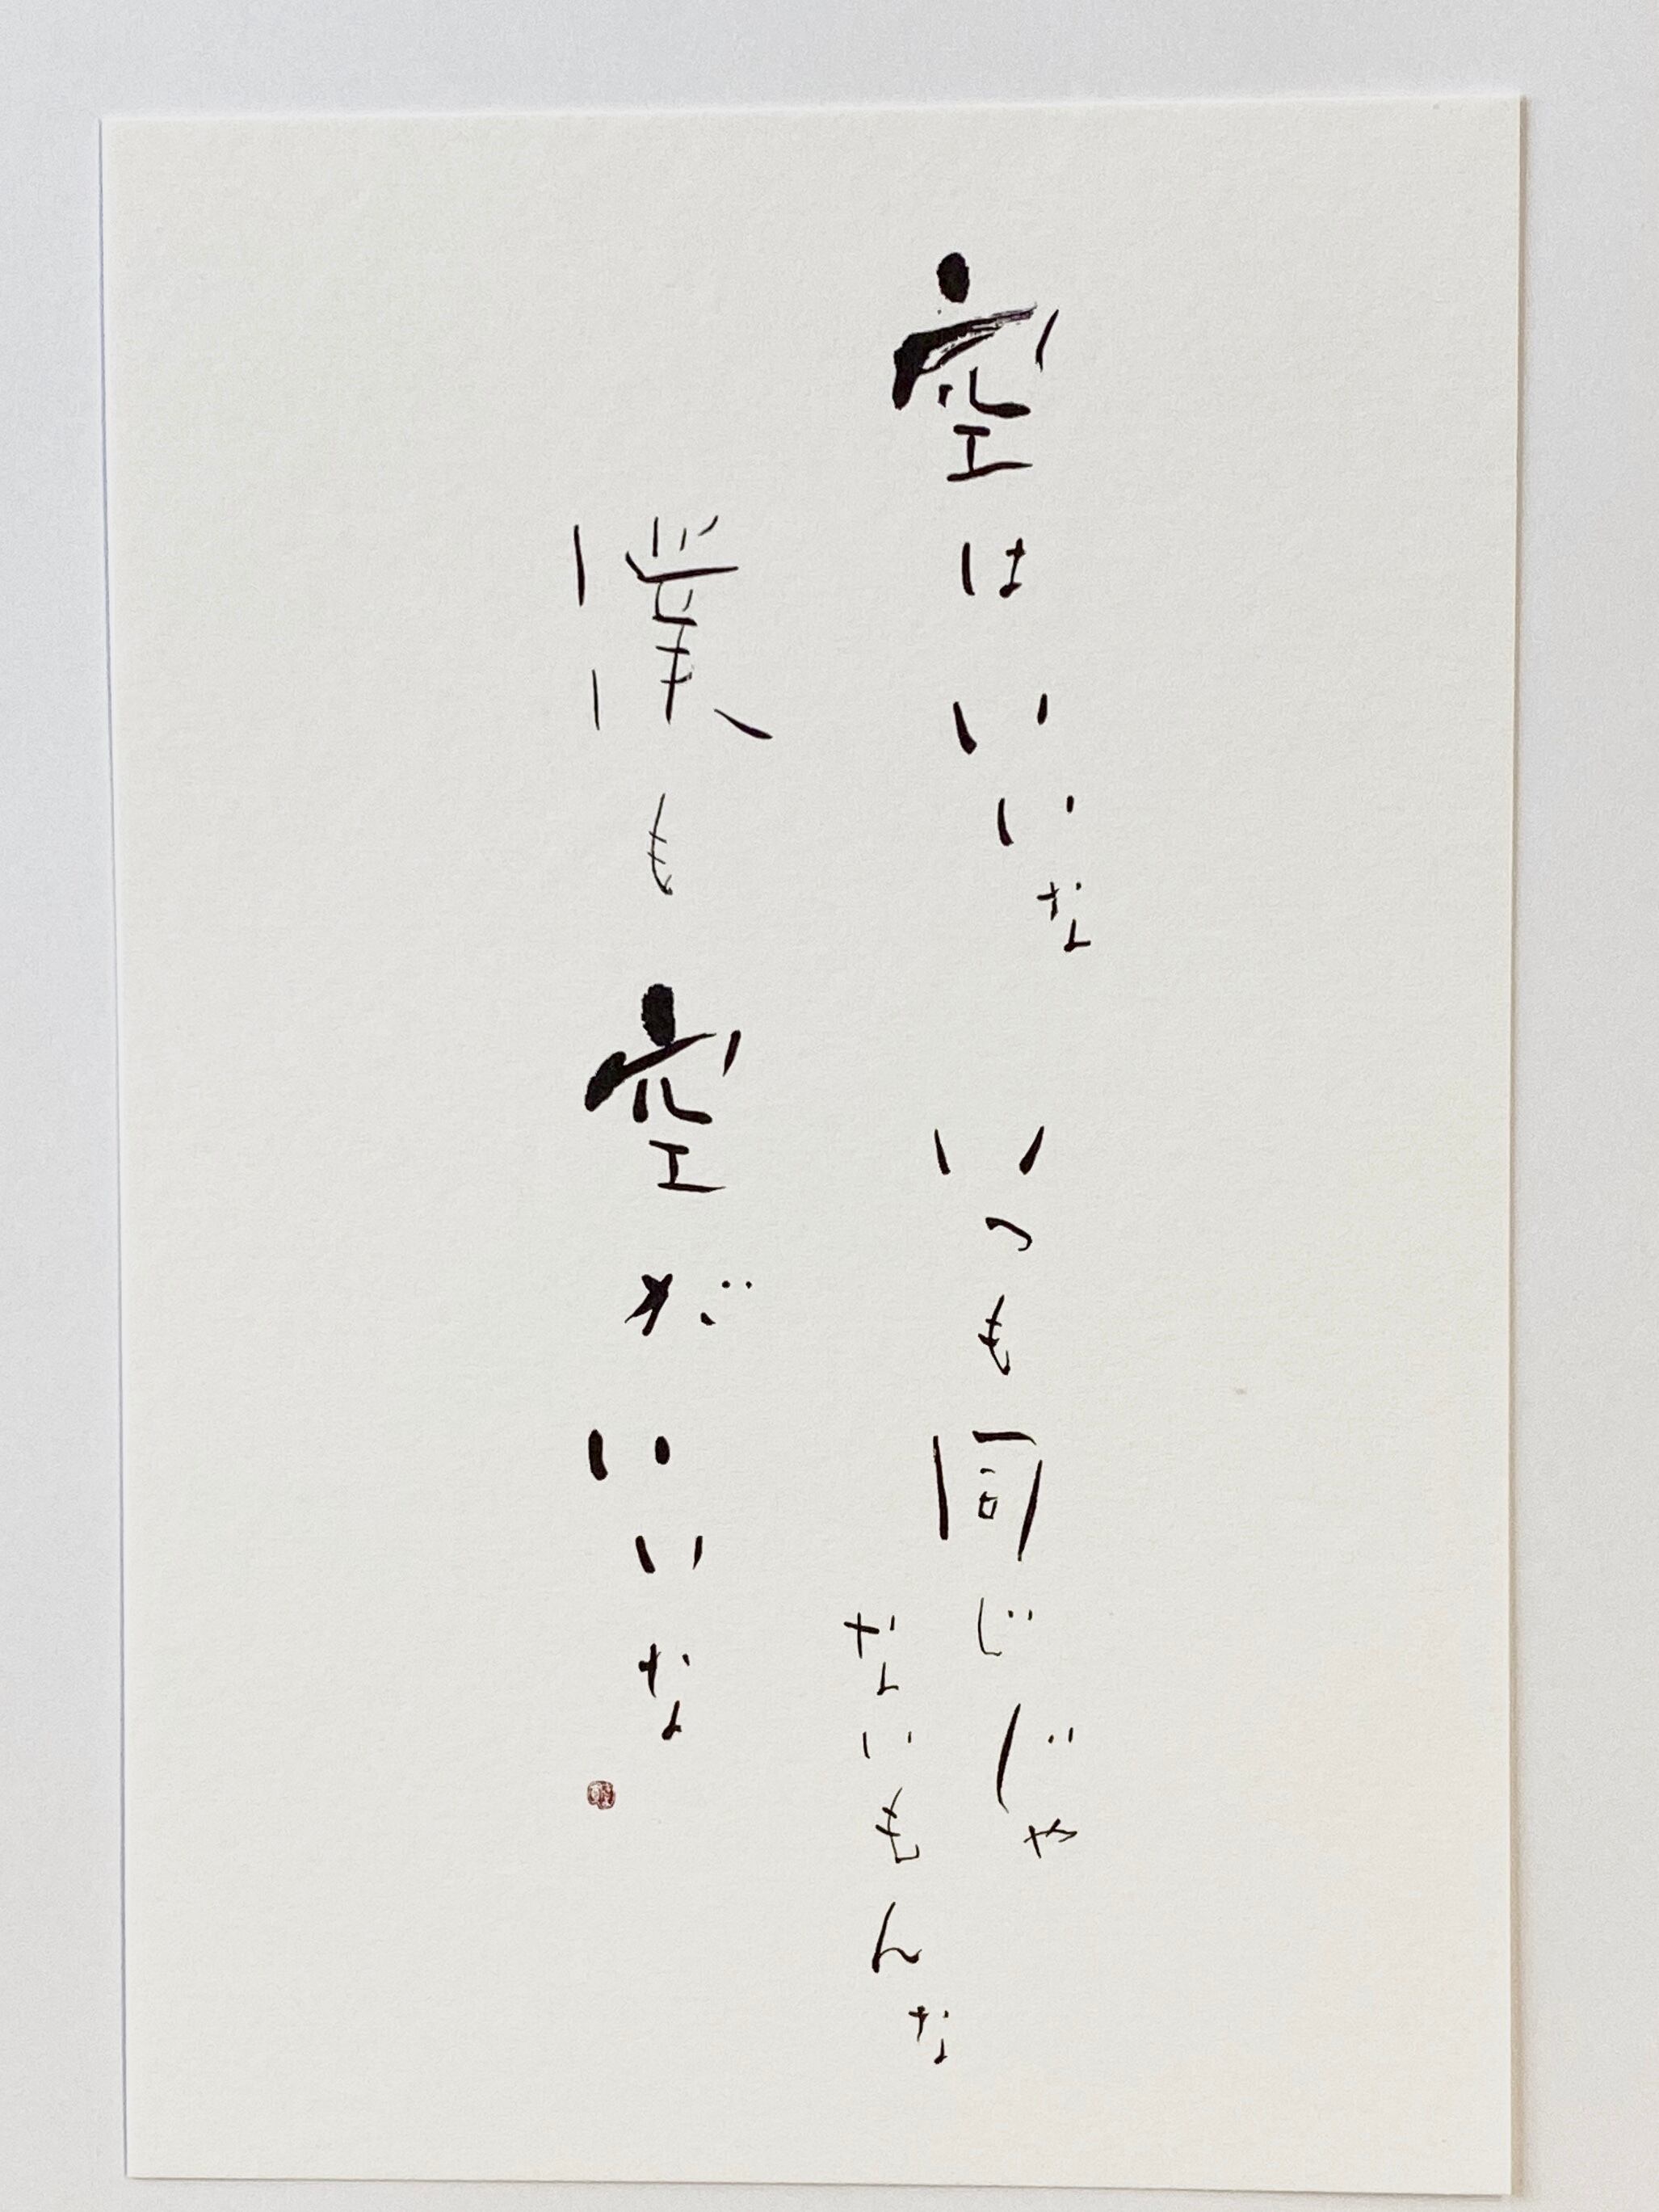 空はいいな
いつも同じじゃ
ないもんな
僕も空がいいな